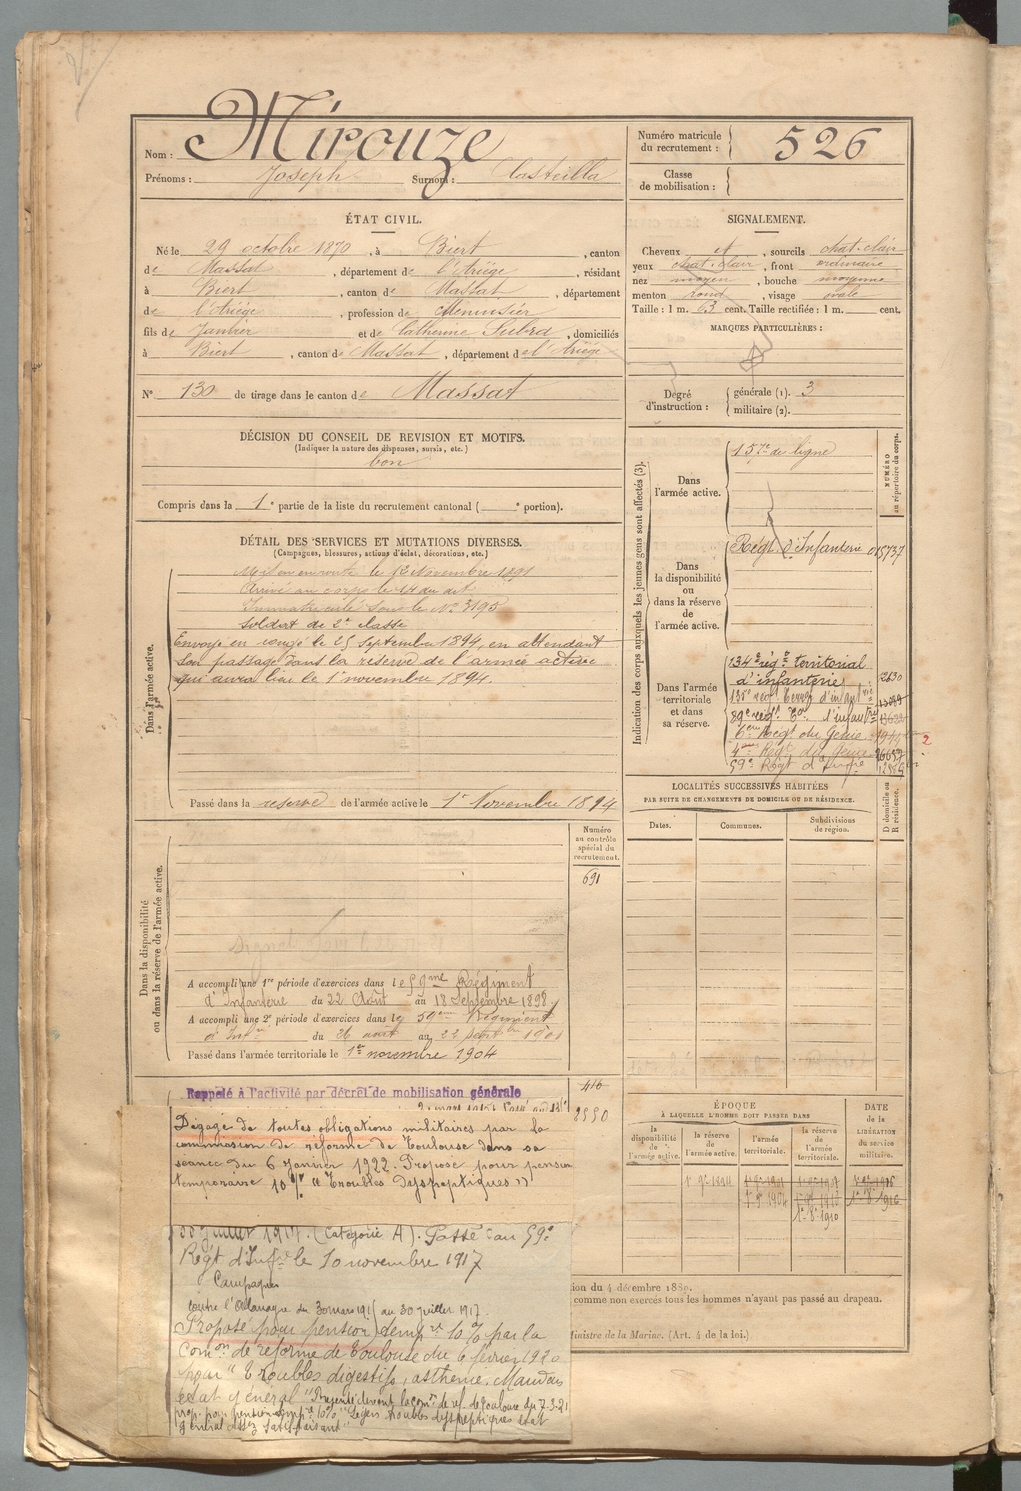 Nom : Mirouze
Prénoms : Joseph Surnom : Casteilla
Numéro matricule du recrutement : 526
Classe de mobilisation :
ÉTAT CIVIL.
Né le 29 octobre 1870, à Biert, canton
de Massat, département de l'Ariège, résidant
à Biert, canton de Massat, département
de l'Ariège, profession de Menuisier
fils de Janvier et de Catherine Subra, domiciliés
à Biert, canton de Massat, département de l'Ariège
N° 130 de tirage dans le canton de Massat
DÉCISION DU CONSEIL DE REVISION ET MOTIFS.
(Indiquer la nature des dispenses, sursis, etc.)
bon
Compris dans la 1e partie de la liste du recrutement cantonal ( e portion).
SIGNALEMENT.
Cheveux et, sourcils chat. clair
yeux chat. clair, front ordinaire
nez moyen, bouche moyenne
menton rond, visage ovale
Taille : 1 m. 63 cent. Taille rectifiée : 1 m. cent.
MARQUES PARTICULIÈRES :
Degré d'instruction : générale (1). 3
militaire (2).
DÉTAIL DES SERVICES ET MUTATIONS DIVERSES.
(Campagnes, blessures, actions d'éclat, décorations, etc.)
Dans l'armée active.
Mis en route le 12 Novembre 1891
Arrivé au corps le 14 du dit
Immatriculé sous le N° 3195
Soldat de 2e classe
Envoyé en congé le 25 septembre 1894, en attendant
son passage dans la réserve de l'armée active
qui aura lieu le 1er novembre 1894.
Passé dans la réserve de l'armée active le 1er Novembre 1894
Indication des corps auxquels les jeunes gens sont affectés (3).
NUMÉRO au répertoire du corps.
Dans l'armée active.
157e de ligne
Dans la disponibilité ou dans la réserve de l'armée active.
Régt d'Infanterie 015737
Dans l'armée territoriale et dans sa réserve.
134e régt territorial
d'infanterie
135e régt territ d'infanterie
89e régt Ter. d'infanterie
6ème Régt du Génie
4ème Régt du Génie
59e Régt d'Infie
2
LOCALITÉS SUCCESSIVES HABITÉES
PAR SUITE DE CHANGEMENTS DE DOMICILE OU DE RÉSIDENCE.
Dates. Communes. Subdivisions de région. D domicile ou R résidence.
Dans la disponibilité ou dans la réserve de l'armée active.
Numéro au contrôle spécial du recrutement.
691
A accompli une 1re période d'exercices dans le 59me Régiment
d'Infanterie du 22 Août au 18 Septembre 1898
A accompli une 2e période d'exercices dans le 59me Régiment
d'Infie du 26 août au 22 septbre 1901
Passé dans l'armée territoriale le 1er novembre 1904
416
Rappelé à l'activité par décret de mobilisation générale
Dégagé de toutes obligations militaires par la
commission de réforme de Toulouse dans sa
séance du 6 Janvier 1922. Proposé pour pension
temporaire 10 % "Troubles dyspeptiques"
30 Juillet 1917. (Catégorie A). Passé au 59e
Régt d'Infie le 10 novembre 1917
Campagnes
contre l'Allemagne du 30 mars 1915 au 30 juillet 1917.
Proposé pour pension temp re 10 % par la
Comon de réforme de Toulouse du 6 février 1920
pour "troubles digestifs, asthénie. Mauvais
état général" Présenté devant la com on de réf. de Toulouse du 7.3.21
prop. pour pension temp re 10 % "Légers troubles dyspeptiques état
général assez satisfaisant"
ÉPOQUE
À LAQUELLE L'HOMME DOIT PASSER DANS
la disponibilité de l'armée active. la réserve de l'armée active. l'armée territoriale. la réserve de l'armée territoriale.
DATE de la LIBÉRATION du service militaire.
tion du 4 décembre 1889.
comme non exercés tous les hommes n'ayant pas passé au drapeau.
Ministre de la Marine. (Art. 4 de la loi.)